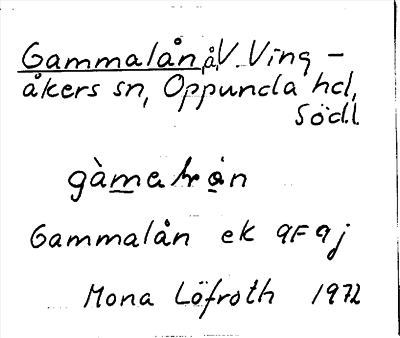 Gammalån, å, V Ving-
åkers sn, Oppunda hd,
Södl
Gammalån ek 9F9j
Mona Löfroth 1972